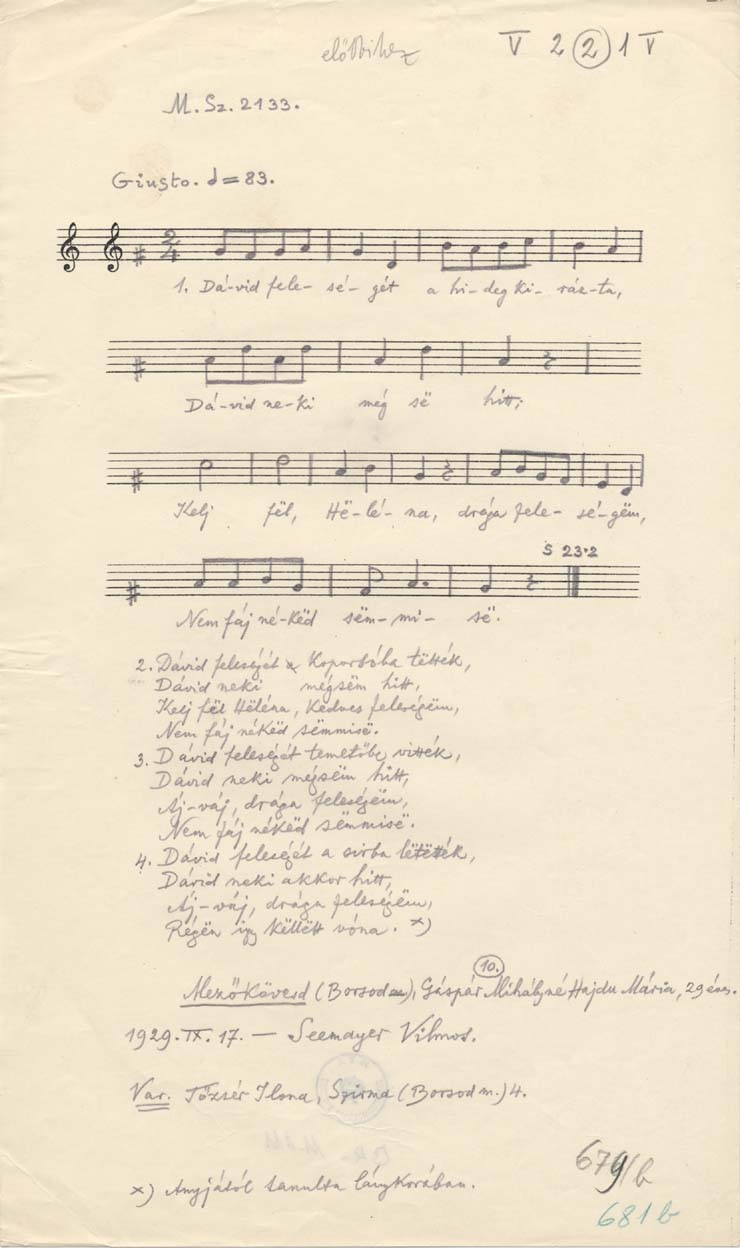 előbbihez V 2 2 1 V
M. Sz. 2133.
Giusto. ♩ = 83.
2/4
1. Dá-vid fele- sé- gét a hi-deg ki- ráz-ta,
Dá-vid ne-ki még së hitt;
Kelj fël, Hë-lé- na, drága fele- sé-gëm,
S 23·2
Nem fáj né-këd sëm-mi- së.
2. Dávid feleségét a koporsóba tëtték,
Dávid neki mégsëm hitt,
Kelj fël Hëléna, kedves feleségëm,
Nem fáj nékëd sëmmisë.
3. Dávid feleségét temetőbe vitték,
Dávid neki mégsëm hitt,
Áj-váj, drága feleségëm,
Nem fáj nékëd sëmmisë.
4. Dávid feleségét a sírba lëtëtték,
Dávid neki akkor hitt,
Áj-váj, drága feleségëm,
Régën így këllëtt vóna. x)
10.
Mezőkövesd (Borsod m.), Gáspár Mihályné Hajdu Mária, 29 éves.
1929. IX. 17. — Seemayer Vilmos.
Var. Tőzsér Ilona, Szirma (Borsod m.) 4.
x) Anyjától tanulta lánykorában.
679/b
681 b